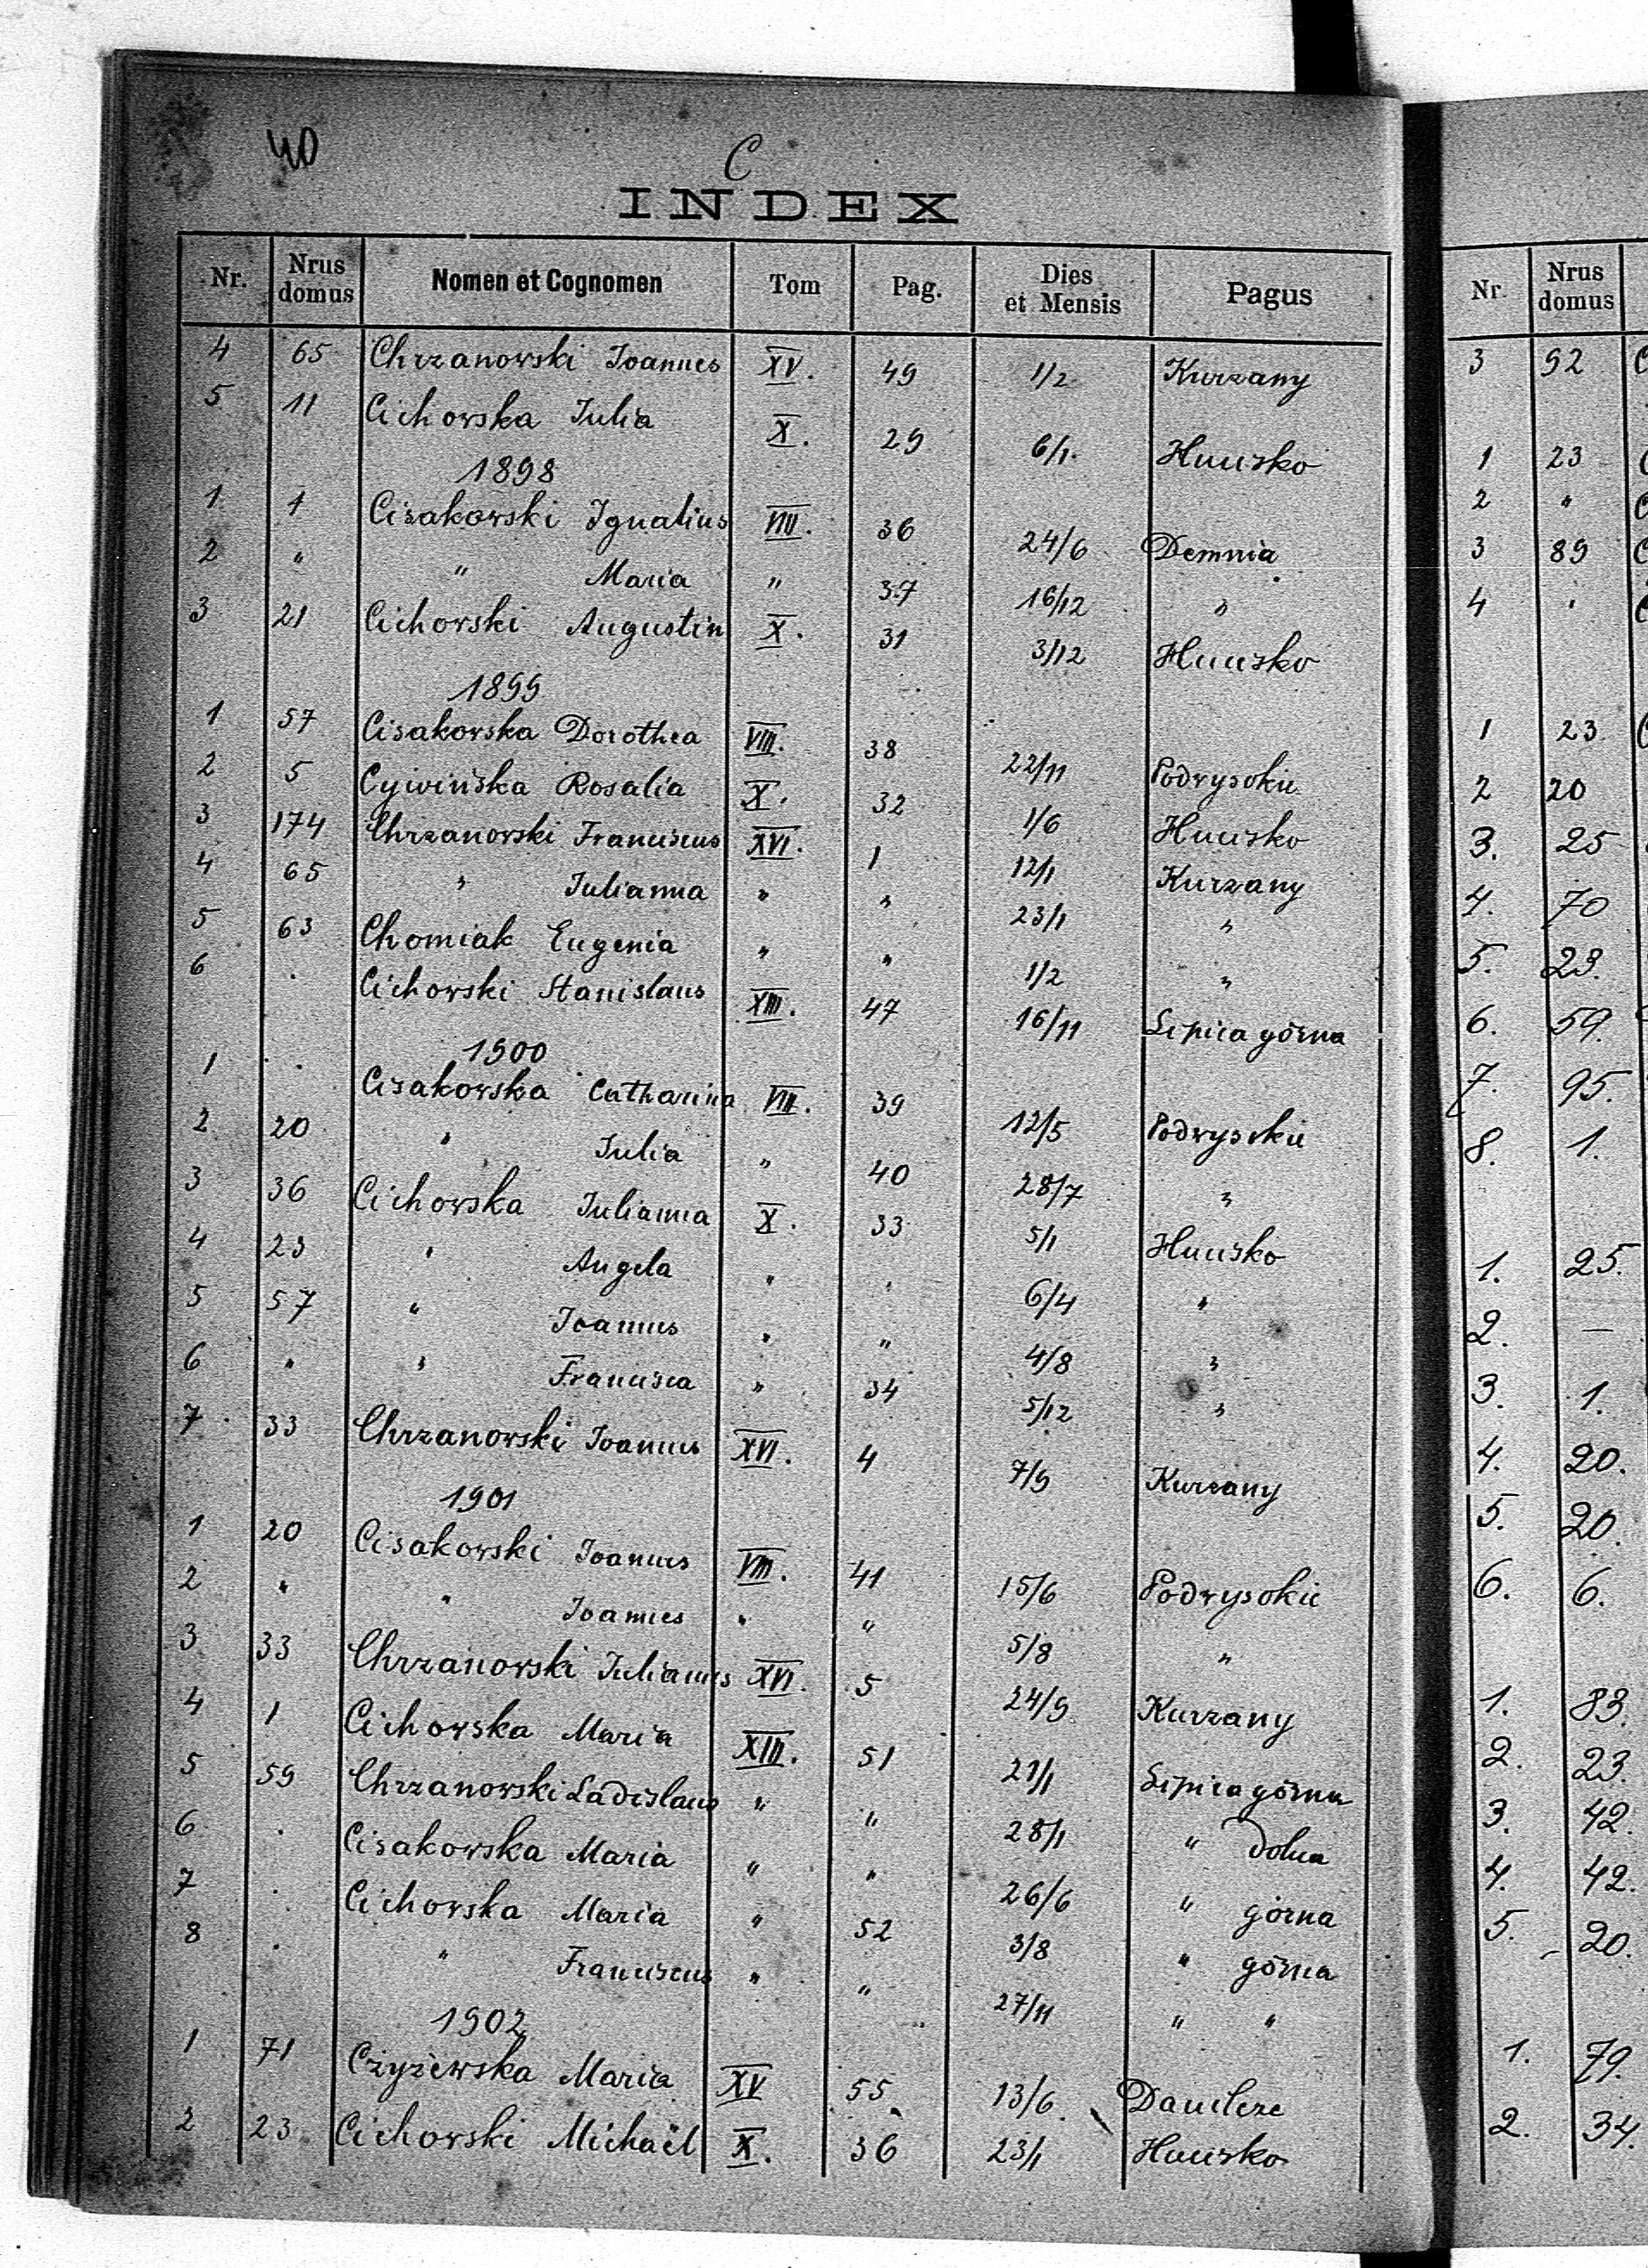 40
C
INDEX
Nr. Nrus domus Nomen et Cognomen Tom Pag. Dies et Mensis Pagus
4 65 Chrzanowski Joannes XV. 49 1/2 Kurzany
5 11 Cichowska Julia X. 29 6/1. Hucisko
1898
1 1 Cisakowski Ignatius VIII. 36 24/6 Demnia
2 " " Maria " 37 16/12 "
3 21 Cichowski Augustin X. 31 3/12 Hucisko
1899
1 57 Cisakowska Dorothea VIII. 38 22/11 Podwysokie
2 5 Cywińska Rosalia X. 32 1/6 Hucisko
3 174 Chrzanowski Franciscus XVI. 1 12/1 Kurzany
4 65 " Julianna " " 23/1 "
5 63 Chomiak Eugenia " " 1/2 "
6 . Cichowski Stanislaus XIII. 47 16/11 Lipica górna
1900
1 . Cisakowska Catharina VIII. 39 12/5 Podwysokie
2 20 " Julia " 40 28/7 "
3 36 Cichowska Julianna X. 33 5/1 Hucisko
4 23 " Angela " " 6/4 "
5 57 " Joannes " " 4/8 "
6 " " Francisca " 34 5/12 "
7 33 Chrzanowski Joannes XVI. 4 7/9 Kurzany
1901
1 20 Cisakowski Joannes VIII. 41 15/6 Podwysokie
2 " " Joannes " " 5/8 "
3 33 Chrzanowski Julianus XVI. 5 24/9 Kurzany
4 1 Cichowska Maria XIII. 51 21/1 Lipica górna
5 59 Chrzanowski Ladislaus " " 28/1 " dolna
6 . Cisakowska Maria " " 26/6 " górna
7 . Cichowska Maria " 52 3/8 " górna
8 . " Franciscus " " 27/11 " "
1902
1 71 Czyżewska Maria XV 55 13/6 Danilcze
2 23 Cichowski Michaël X. 36 23/1 Hucisko
Nr. Nrus domus
3 92
1 23
2 "
3 89
4 .
1 23
2 20
3. 25
4. 70
5. 23.
6. 59.
7. 95.
8. 1.
1. 25.
2. —
3. 1.
4. 20.
5. 20
6. 6.
1. 83.
2. 23.
3. 42.
4. 42.
5. 20.
1. 79.
2. 34.